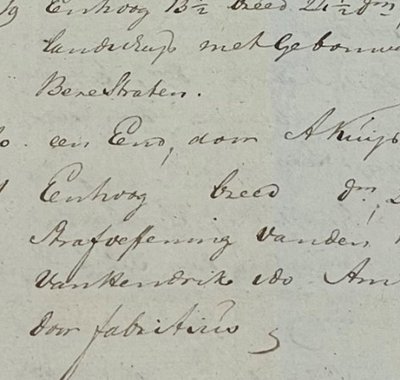 Enhoog 13½ breed 21½ dm
landschap met Gebouw
BereStraten.
een End, door A Kuijp
Enhoog breed dm,
Strafoeffening vanden
van Hendrik Am
door fabritius